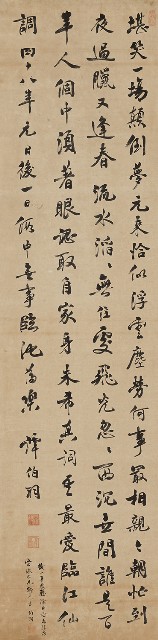 堪笑一場顛倒夢元來恰似浮雲塵勞何事最相親朝〻忙到
夜過臘又逢春流水滔〻無住處飛光忽〻西沉世間誰是百
年人個中須著眼證取自家身朱希真詞最愛臨江仙
調四十八年元日後一日假中無事臨池為樂 譚伯羽